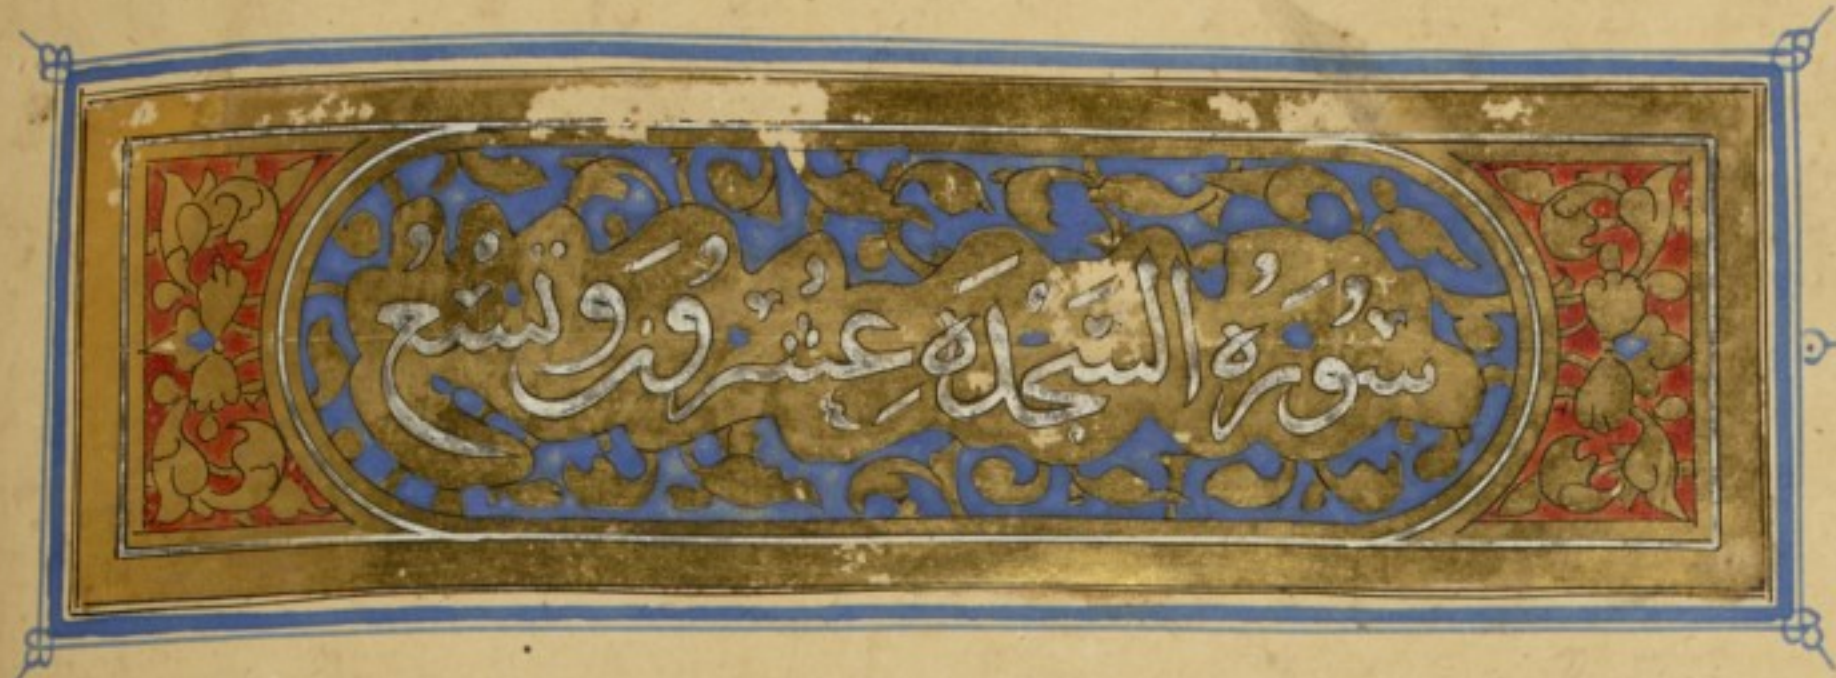 سُورَةُ السَّجْدَةِ عِشْرُونَ وَتِسْعُ